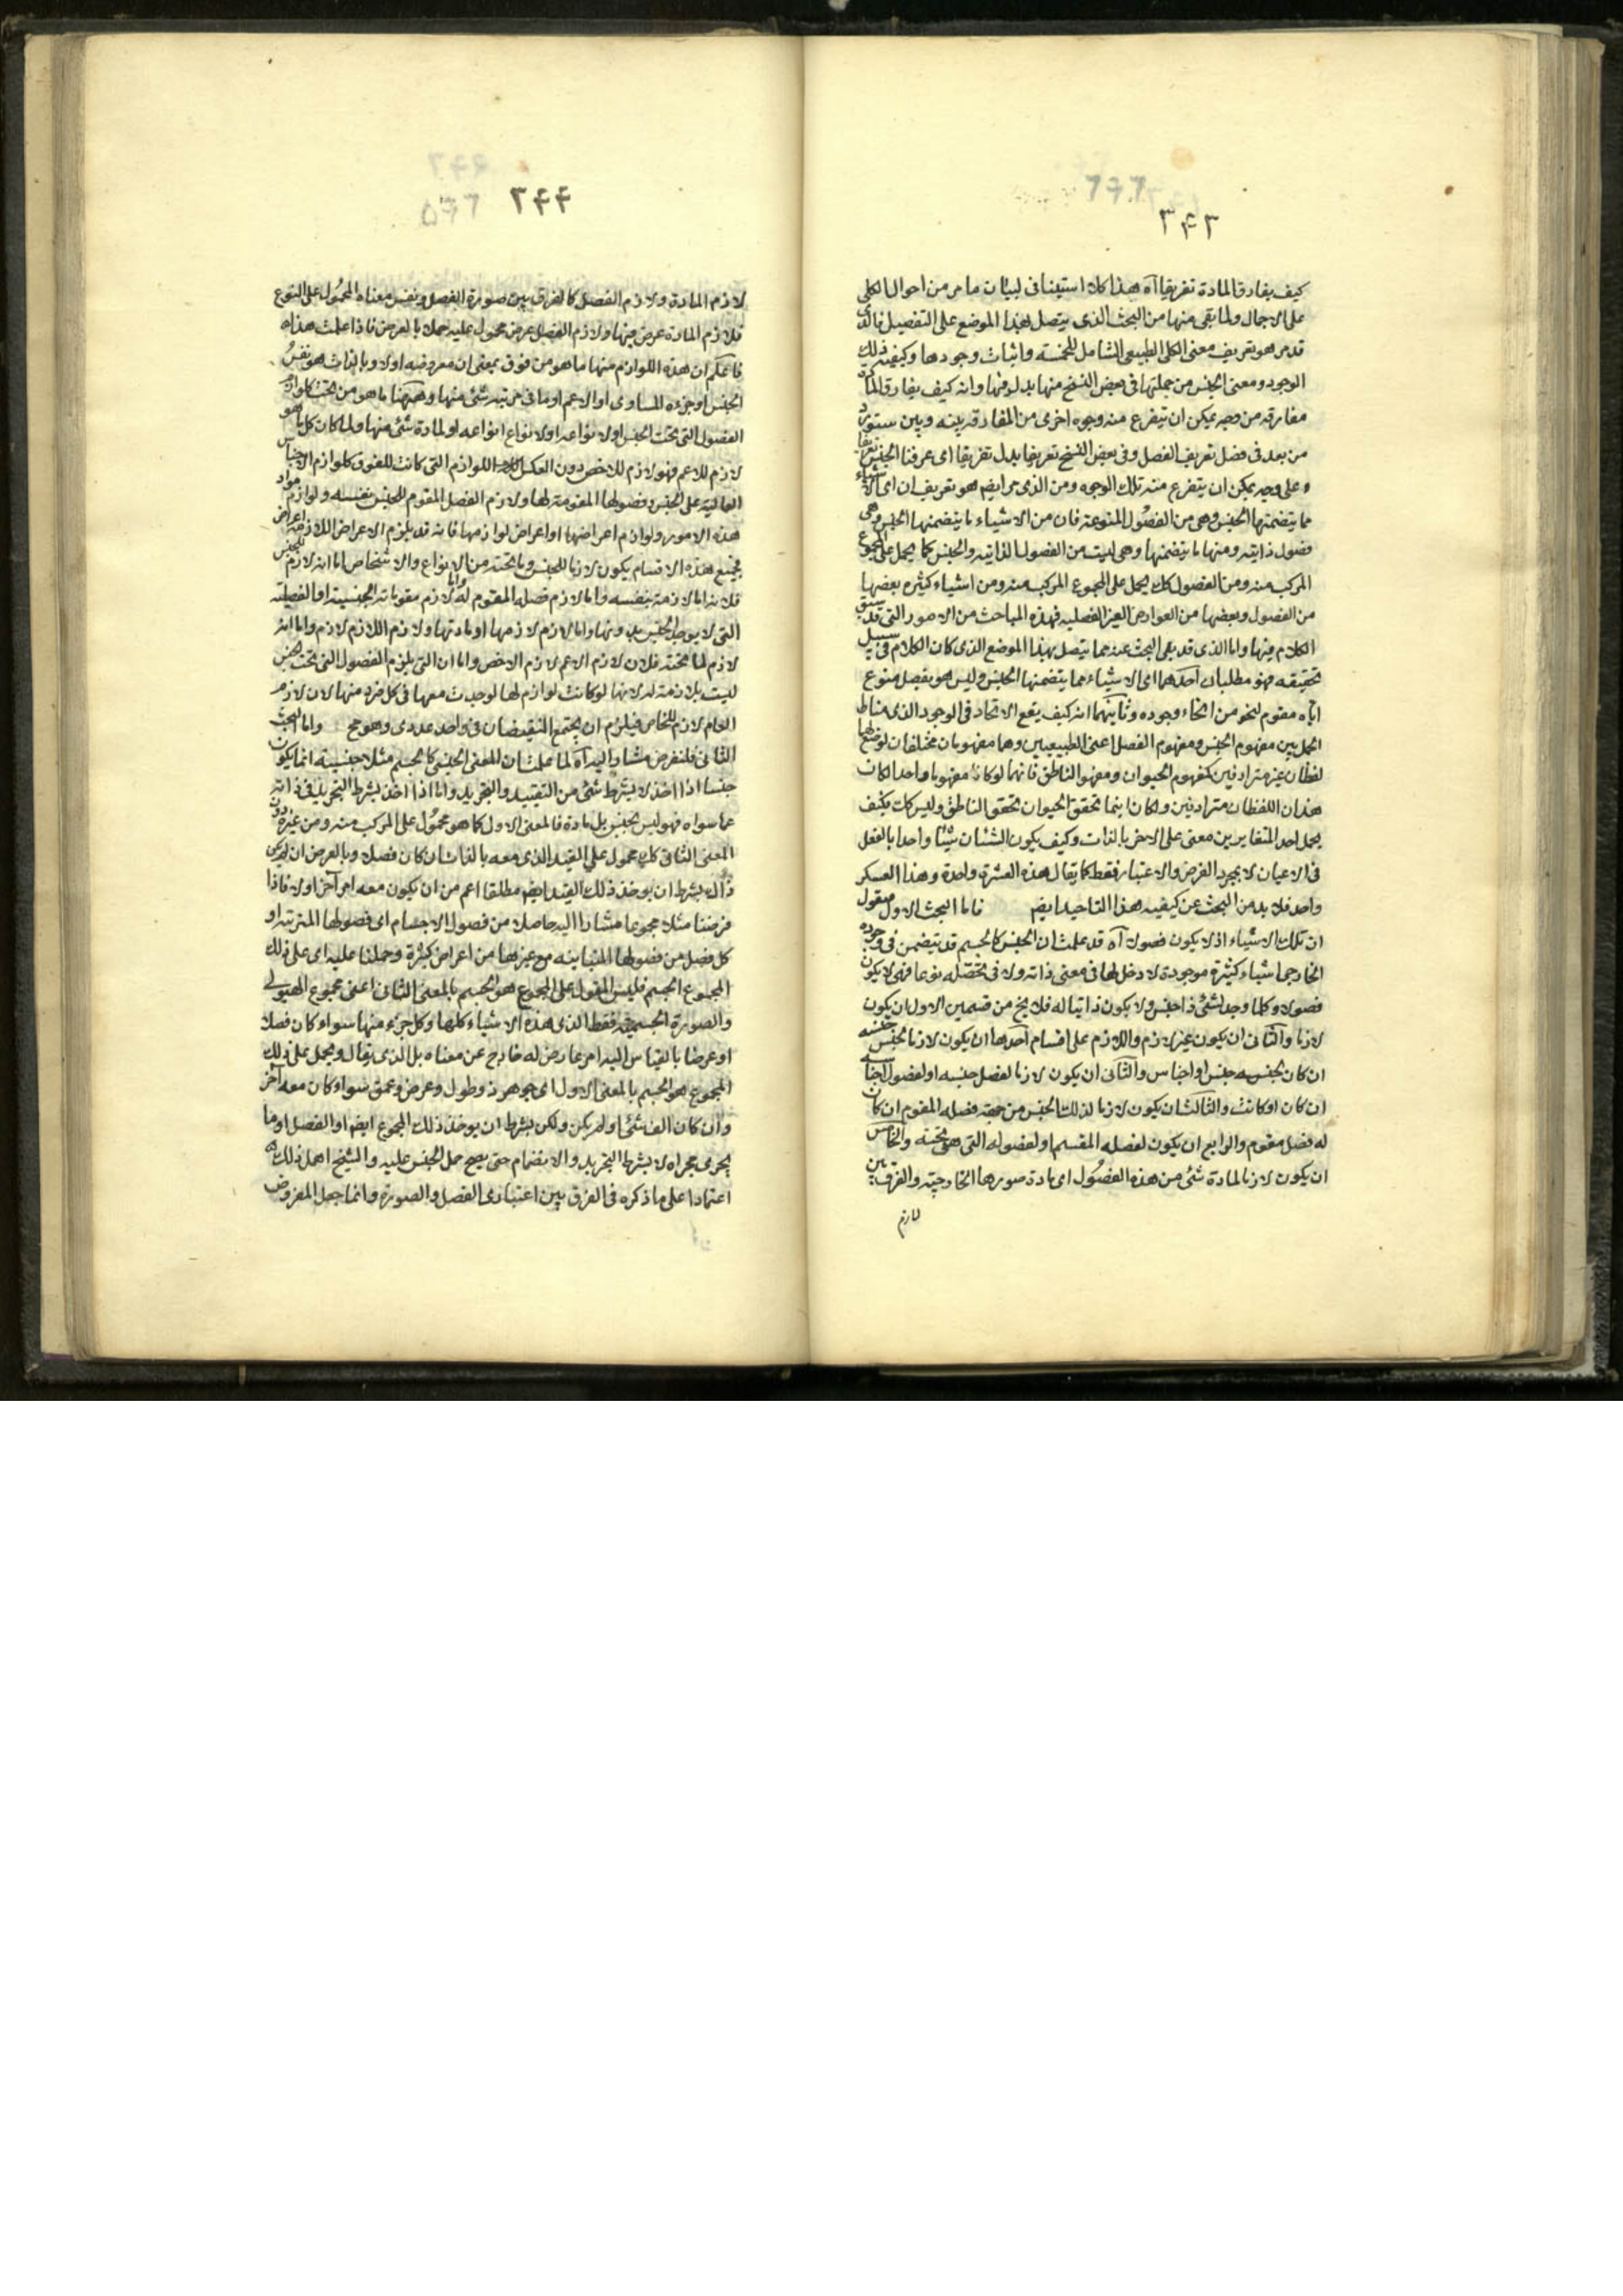 ٣٤٣
كيف يفارق المادة تفريقا آه هذا كلام استيفانى لبيان ما مر من احوال الكلى
على الاجمال ولما بقى منها من البحث الذى يتصل بهذا الموضع على التفصيل فالذى
قد مر هو تعريف معنى الكلى الطبيعى الشامل للخمسة واثبات وجودها وكيفية ذلك
الوجود ومعنى الجنس من جملتها فى بعض النسخ منها بدل فيها وانه كيف يفارق المادة
مفارقة من وجه يمكن ان يتفرع منه وجوه اخرى من المفارقة بينه وبين ستورد
من بعد فى فصل تعريف الفصل وفى بعض النسخ تعريفا بدل تفريقا اى عرفنا الجنس تعريفا
و على وجه يمكن ان يتفرع منه تلك الوجوه ومن الذى مر ايضم هو تعريف ان اى الاشياء
مما يتضمنها الجنس وهى من الفصول المنوعة فان من الاشياء ما يتضمنها الجنس وهى
فصول ذاتيه ومنها ما يتضمنها وهى ليست من الفصول الذاتيه والجنس كما يحمل على المجموع
المركب منه ومن الفصول كك يحمل على المجموع المركب منه ومن اشياء كثيره بعضها
من الفصول وبعضها من العوارض الغير الفصليه فهذه المباحث من الامور التى قد سبق
الكلام فيها واما الذى قد بقى البحث عنه مما يتصل بهذا الموضع الذى كان الكلام فى سبيل
تحقيقه فهو مطلبان احدهما اى الاشياء مما يتضمنها الجنس وليس هو بفصل منوع
اياه مقوم لنحو من انحاء وجوده وثانيهما انه كيف يقع الاتحاد فى الوجود الذى مناط
الحمل بين مفهوم الجنس ومفهوم الفصل اعنى الطبيعيين وهما مفهومان مختلفان لوضع لهما
لفظان غير مترادفين كمفهوم الحيوان ومفهو الناطق فانهما لو كانا مفهوما واحدا لكان
هذان اللفظان مترادفين ولكان اينما تحقق الحيوان تحقق الناطق وليس كك فكيف
يحمل احد المتغايرين معنى على الاخر بالذات وكيف يكون الشيئان شيئا واحدا بالفعل
فى الاعيان لا بمجرد الفرض والاعتبار فقط كما يقال هذه العشرة واحدة وهذا العسكر
واحد فلا بد من البحث عن كيفية هذا التاحيد ايضم فاما البحث الاول فنقول
ان تلك الاشياء اذ لا يكون فصولا آه قد علمت ان الجنس كالجسم قد يتضمن فى وجوده
الخارجى اشياء كثيرة موجودة لا دخل لها فى معنى ذاته ولا فى تحصله نوعا فهى لا يكون
فصولا وكلما وجد لشئ ذا جنس ولا يكون ذاتيا له فلا يخ من قسمين الاول ان يكون
لازما والثانى ان يكون غير لازم واللازم على اقسام احدها ان يكون لازما لجنس جنسه
ان كان لجنسه جنس او اجناس والثانى ان يكون لازما لفصل جنسه او لفصول اجناسه
ان كان او كانت والثالث ان يكون لازما لذلك الجنس من جهة فصله المقوم ان كان
له فصل مقوم والرابع ان يكون لفصله المقسم او لفصوله التى هى تحته والخامس
ان يكون لازما لمادة شئ من هذه الفصول اى مادة صورها الخارجية والفرق بين
لازم
٣٤٤
لازم المادة ولازم الفصل كالفرق بين صورة الفصل ونفس معناه المحمول على النوع
فلازم المادة عرض فيها ولازم الفصل عرض محمول عليه حملا بالعرض فاذا علمت هذا
فاعلم ان هذه اللوازم منها ما هو من فوق بمعنى ان معروضه اولا وبالذات هو نفس
الجنس او جزءه المساوى او الاعم او ما فى مرتبة شئ منها وههنا ما هو من تحت كلوازم
الفصول التى تحت الجنس او لانواعه او لانواع انواعه او لمادة شئ منها ولما كان كل ما هو
لازم للاعم فهو لازم للاخص دون العكس اللوازم التى كانت للفوق كلوازم الاجناس
العالية على الجنس وفصولها المقومة لها ولازم الفصل المقوم للجنس بنفسه ولوازم مواد
هذه الامور ولوازم اعراضها او اعراض لوازمها فانه قد يلزم الاعراض اللازمة اعراض
فجميع هذه الاقسام يكون لازما للجنس وما تحته من الانواع والاشخاص اما انه لازم للجنس
فلانه اما لازمة بنفسه واما لازم فصله المقوم له واما لازم مقوماته الجنسية او الفصلية
التى لا يوجد الجنس بدونها واما لازم لازمها او مادتها ولازم اللازم لازم واما انه
لازم لما تحته فلان لازم الاعم لازم الاخص واما ان التى يلزم الفصول التى تحت الجنس
ليست بلازمة له لانها لو كانت لوازم لها لوجدت معها فى كل فرد منها لان لازم
العام لازم للخاص فيلزم ان يجتمع النقيضان فى واحد عددى وهو مح واما البحث
الثانى فلنفرض مشارا اليه آه لما علمت ان المعنى الجنسى كالجسم مثلا جنسيته انما يكون
جنسا اذا اخذ لا بشرط شئ من التقييد والتجريد واما اذا اخذ بشرط التجريد فى ذاته
عما سواه فهو ليس بجنس بل مادة فالمعنى الاول كما هو محمول على المركب منه ومن غيره دون
المعنى الثانى كك محمول على القيد الذى معه بالذات ان كان فصلا وبالعرض ان لم يكن
ذلك بشرط ان يوخذ ذلك القيد ايضم مطلقا اعم من ان يكون معه امر آخر اولا فاذا
فرضنا مثلا مجموعا مشارا اليه حاصلا من فصول الاجسام اى فصولها المترتبة او
كل فصل من فصولها المتباينه مع غيرها من اعراض كثيرة وحملنا عليه اى على ذلك
المجموع الجسم فليس المقول على المجموع هو الجسم بالمعنى الثانى اعنى مجموع الهيولى
والصورة الجسمية فقط الذى هذه الاشياء كلها وكل جزء منها سواء كان فصلا
او عرضا بالقياس اليه امر عارض له خارج عن معناه بل الذى يقال ويحمل على ذلك
المجموع هو الجسم بالمعنى الاول اى جوهر ذو طول وعرض وعمق سواء كان معه آخر
وان كان الف شئ او لم يكن ولكن بشرط ان يوخذ ذلك المجموع ايضم او الفصل او ما
يجرى مجراه لا بشرط التجريد والانضمام حتى يصح حمل الجنس عليه والشيخ اهمل ذلك
اعتمادا على ما ذكره فى الفرق بين اعتبارى الفصل والصورة وانما جعل المفروض